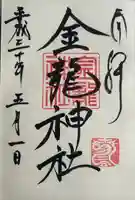 奉拝
金龍神社
平成三十年 五月一日